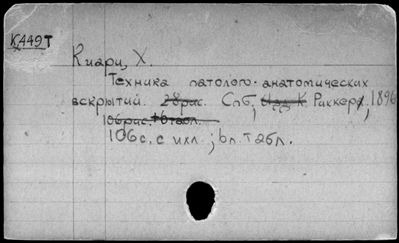 К449т
Киари, Х.
Техника патолого-анатомических
вскрытий. 28рис. Спб, Изд. К. Риккер, 1896
106рис.+6табл.
106с. с илл.; 6л. табл.